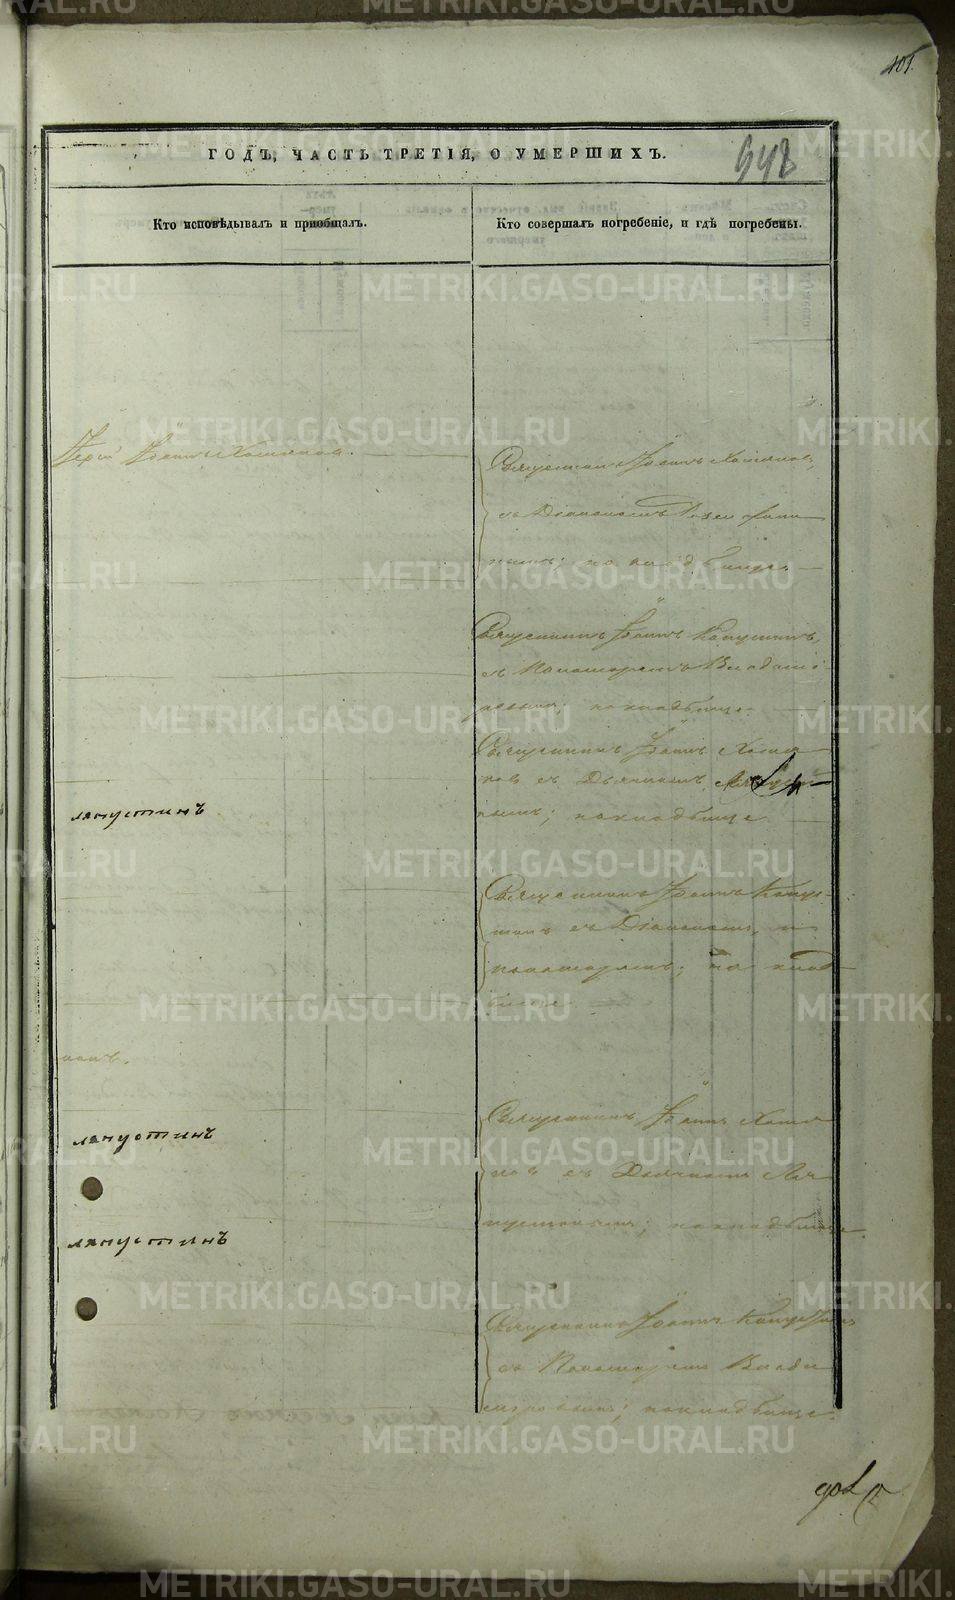 401.
ГОДЪ, ЧАСТЬ ТРЕТІЯ, О УМЕРШИХЪ.
948
Кто исповѣдывалъ и пріобщалъ.
Кто совершалъ погребеніе, и гдѣ погребены.
Іерей Іоаннъ Хомяковъ.
Священникъ Іоаннъ Хомяковъ,
съ Діакономъ
на кладбищѣ
Священникъ Іоаннъ Капустинъ,
съ Пономаремъ Владимі-
ровымъ; на кладбищѣ
Священникъ Іоаннъ Хомя-
ковъ съ Дьячкомъ
на кладбищѣ
ляпустинъ
Священникъ Іоаннъ Капус-
тинъ съ Діакономъ и
пономаремъ; на клад-
бищѣ
ляпустинъ
Священникъ Іоаннъ Хомя-
ковъ съ Дьячкомъ Ля-
пустинымъ; на кладбищѣ.
ляпустинъ
Священникъ Іоаннъ Капустинъ
съ Пономаремъ Влади-
міровымъ; на кладбищѣ.
METRIKI.GASO-URAL.RU